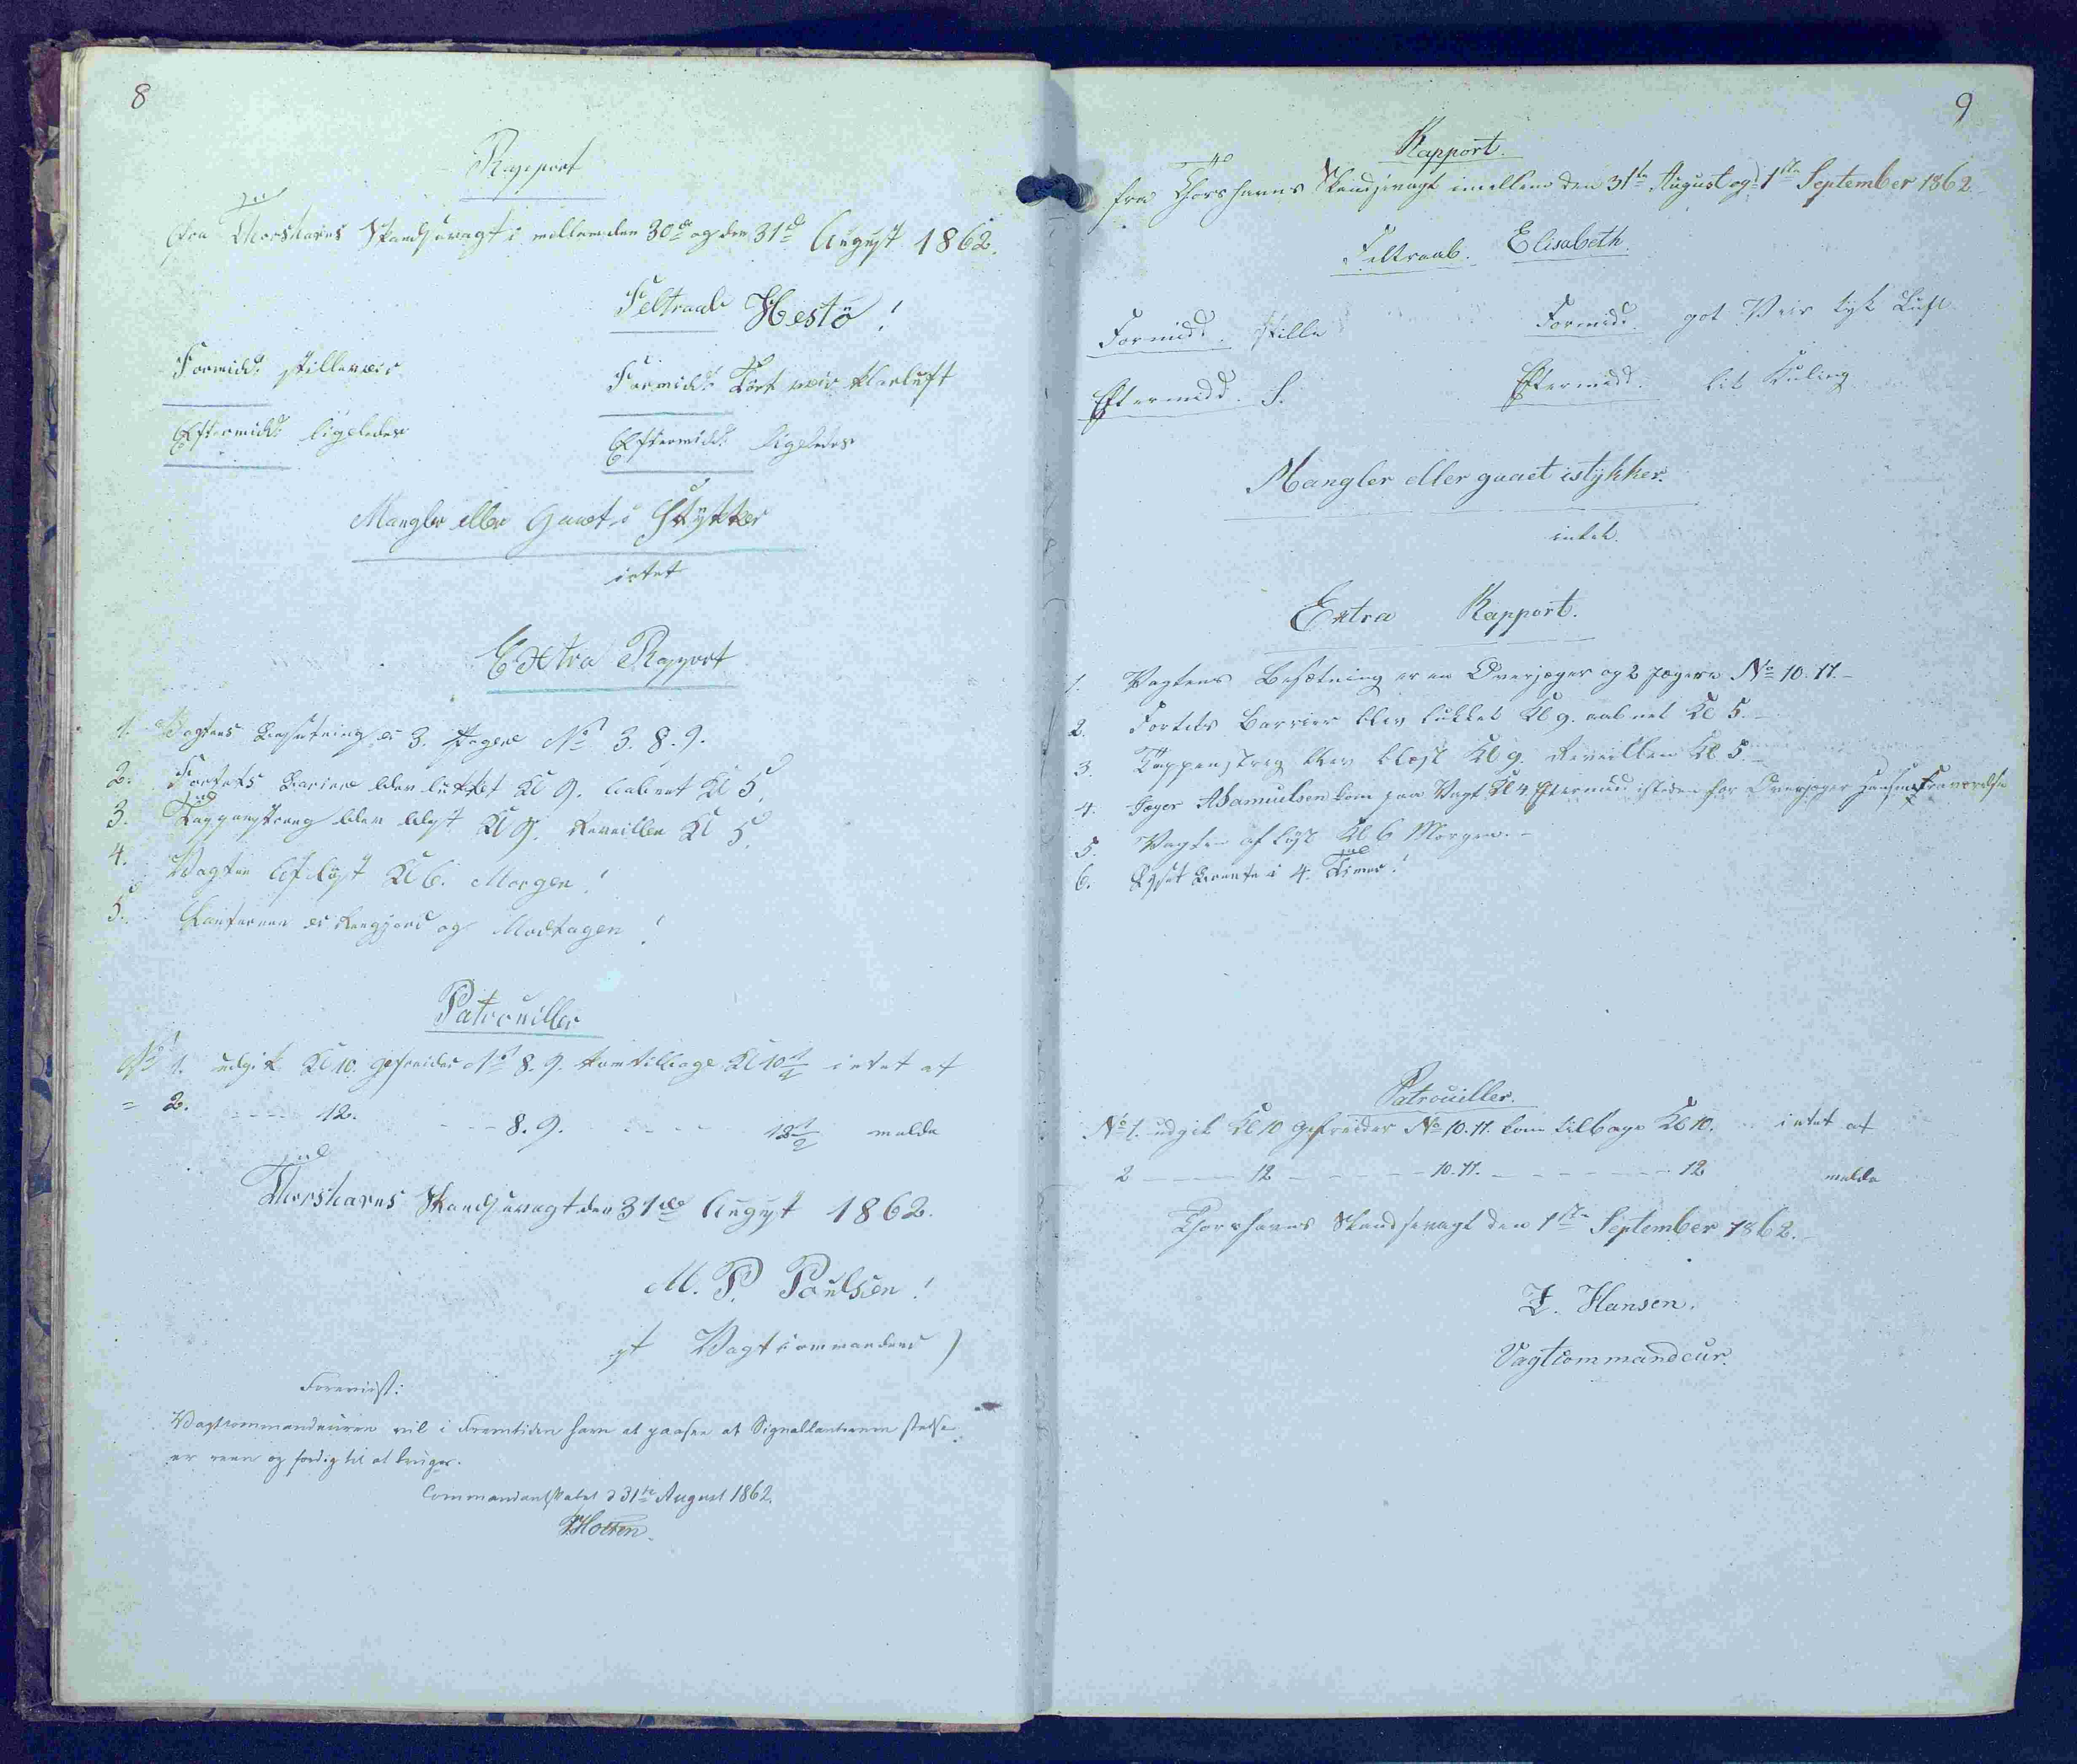 8
Rapport
fra Thorshavns Skandsevagt i mellem den 30de og den 31de August 1862.
Feltraab Hestö!
Formidd: stilleveir Formidd: Tört veir klarluft
Eftermidd: ligeledes Eftermidd: ligeledes
Mangler eller Gaaet i Stykker
intet
Extra Rapport
1. Vagtens Besætning er 3. Jægere No 3. 8. 9.
2. Fortets Bariere blev lukket Kl 9. aabnet Kl 5.
3. Tappenstreeg blev blæst Kl 9. Reveillen Kl 5.
4. Vagten Aflöst Kl 6. Morgen!
5. Lanternen er Rengjord og Modtagen!
Patrouiller
No 1. udgik Kl 10. Gefreider No 8. 9. kom tilbage Kl 10 1/2 intet at
= 2. ---- 12. --- 8. 9. ---- 12 1/2 melde
Thorshavns Skandsevagt den 31de August 1862.
M. P. Poulsen!
Vagtcommandeur
Foreviist:
Vagtcommandeuren vil i Fremtiden have at paasee at Signallanternen stedse
er reen og færdig til at bruges.
Commandantskabet d 31te August 1862.
Holten
9
Rapport.
fra Thorshavns Skandsevagt imellem den 31te August og 1ste September 1862.
Feltraab. Elisabeth.
Formidd. stille Formidd. got Veir tyk Luft
Eftermidd. S. Eftermidd. lit Kuling
Mangler eller gaaet istykker.
intet.
Extra Rapport.
1. Vagtens Besætning er en Overjæger og 2 Jægere No 10. 11.-
2. Fortets Barrier blev lukket Kl 9. aabnet Kl 5.-
3. Tappenstreg blev blæst Kl 9. Reveillen Kl 5.-
4. Jæger A Samuelsen kom paa Vagt Kl 4 Eftermidd isteden for Overjæger Hansens Fraværelse
5. Vagten aflöst Kl 6 Morgen.-
6. Lyset Brente i 4. Timer!
Patrouiller.
No 1. udgik Kl 10 Gefreider No 10. 11. kom tilbage Kl 10. intet at
2 ---- 12 ----- 10. 11. ------ 12 melde
Thorshavns Skandsevagt den 1ste September 1862.
Z. Hansen.
Vagtcommandeur.